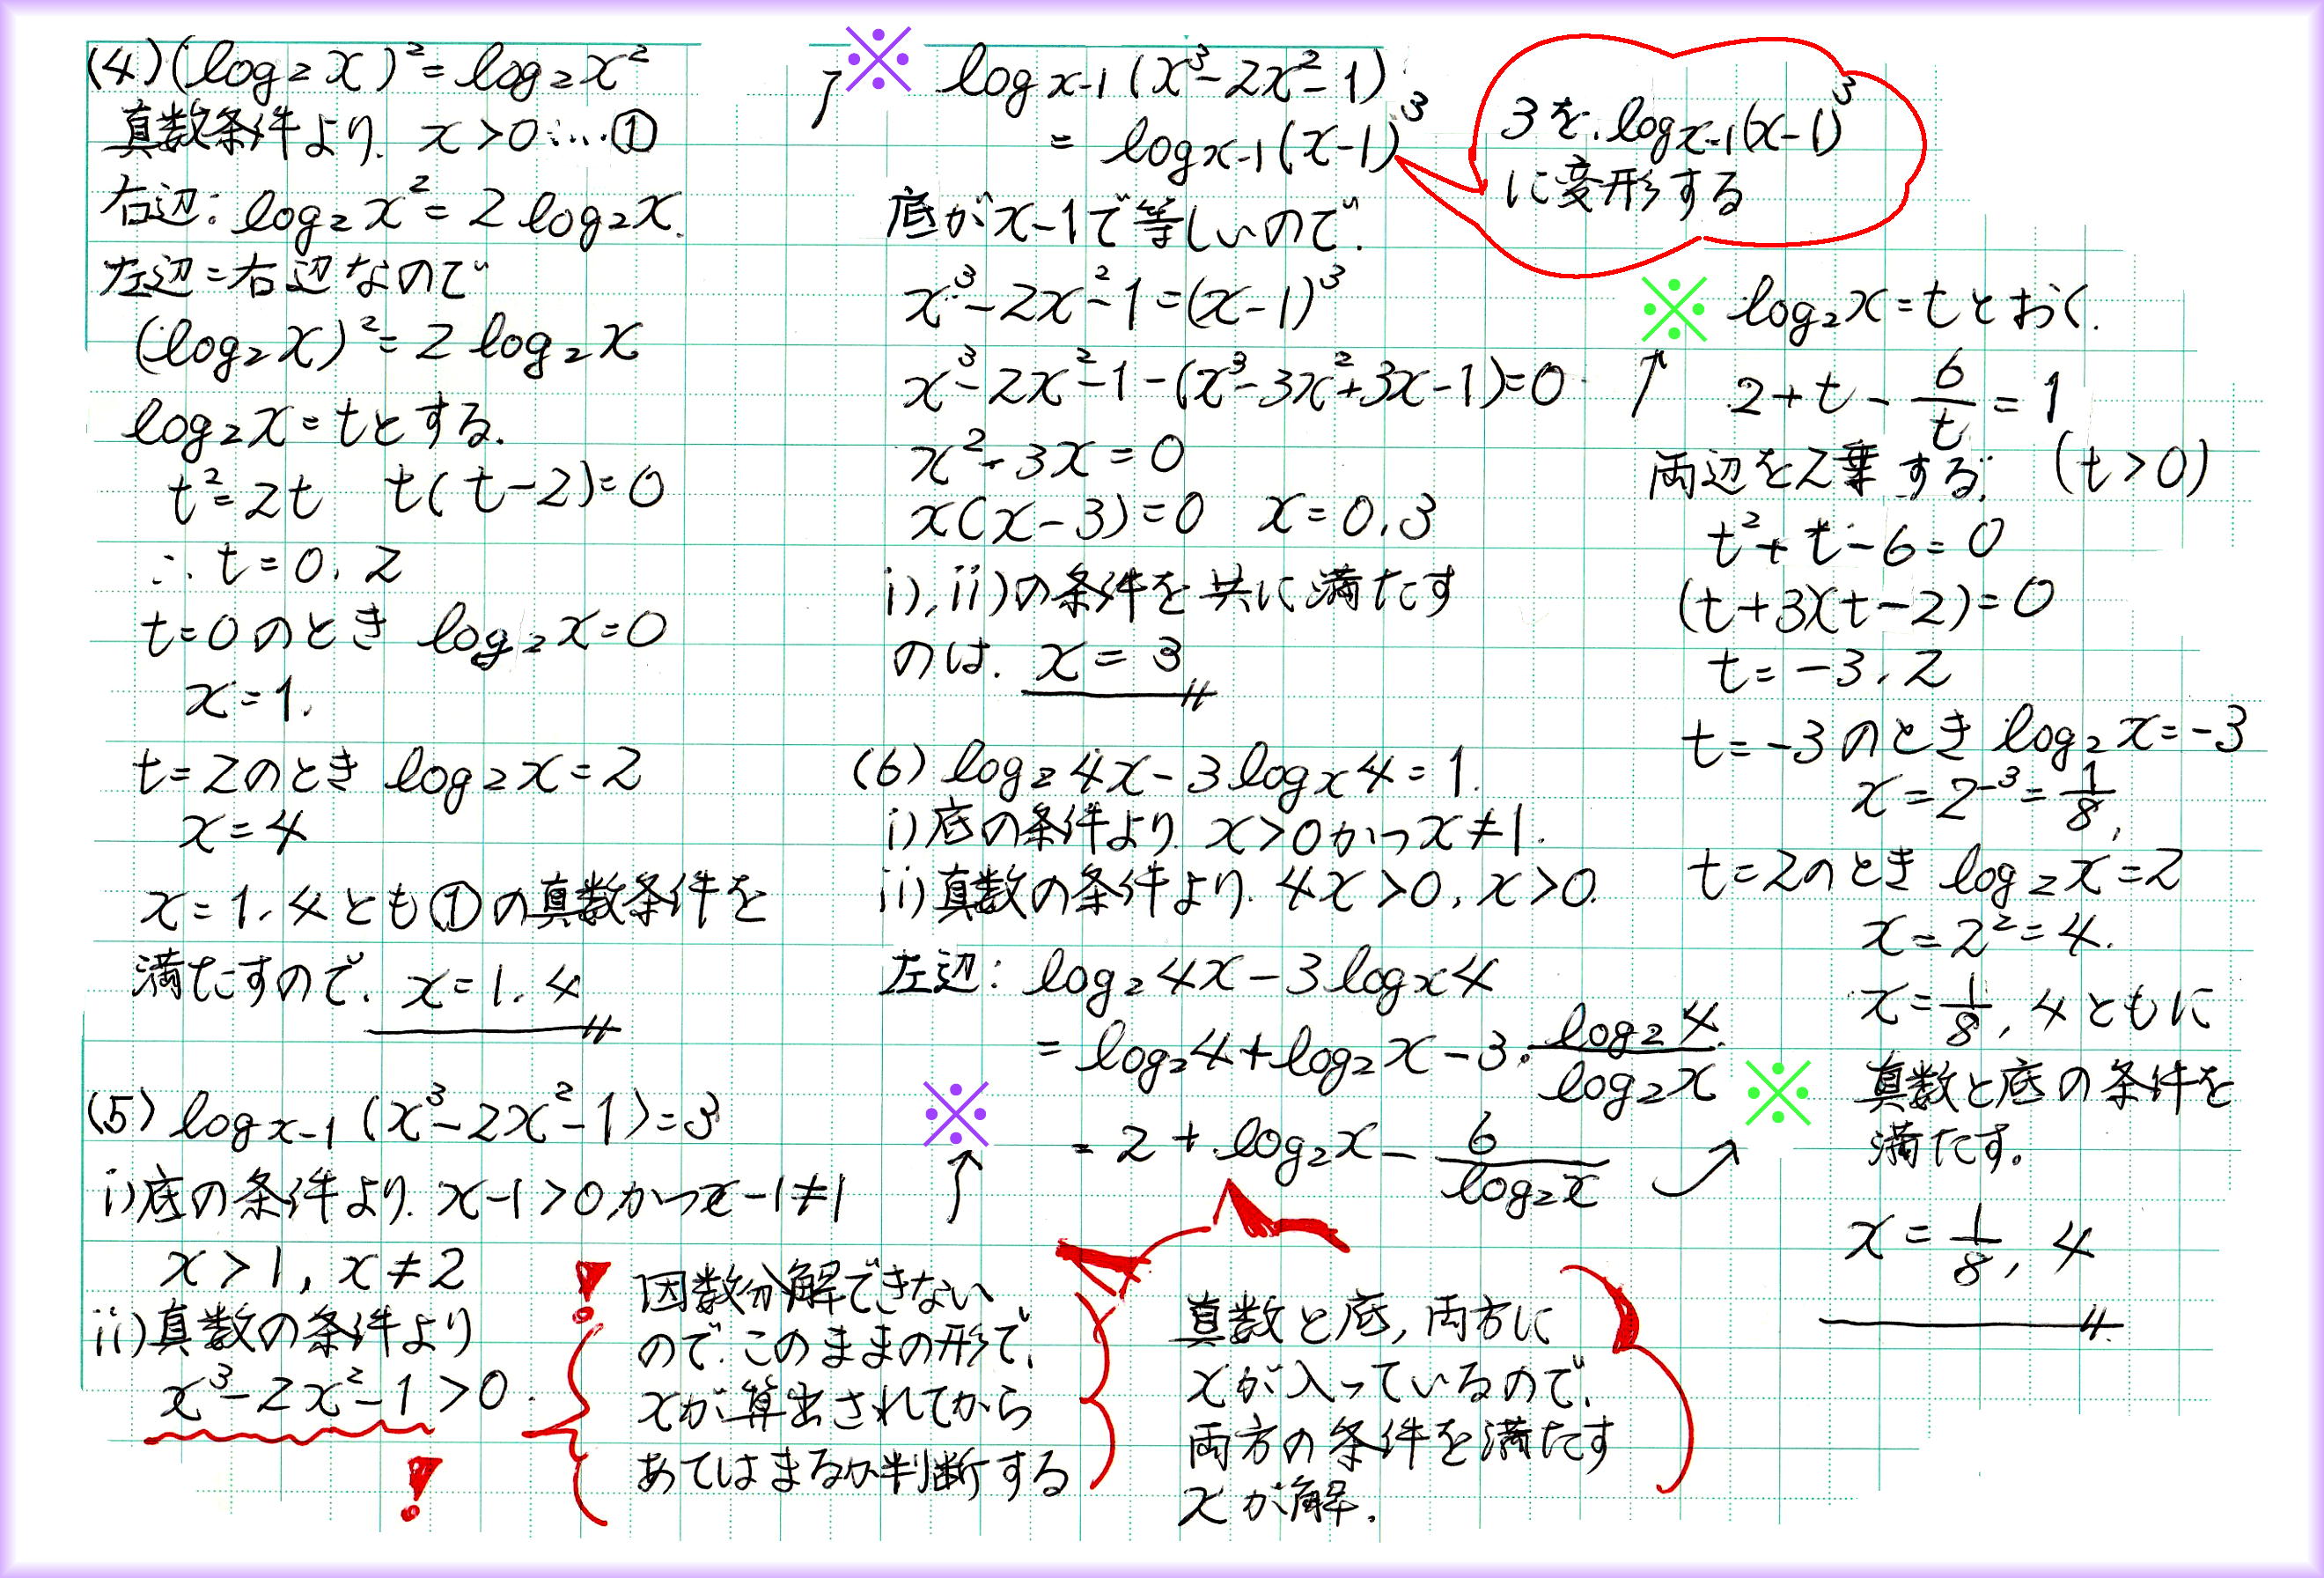 (4) (log₂x)² = log₂x²
真数条件より. x > 0 … ①
右辺: log₂x² = 2 log₂x.
左辺 = 右辺なので
(log₂x)² = 2 log₂x
log₂x = tとする.
t² = 2t t(t-2) = 0
∴ t = 0, 2
t = 0のとき log₂x = 0
x = 1.
t = 2のとき log₂x = 2
x = 4
x = 1, 4とも①の真数条件を
満たすので, x = 1, 4
(5) log x-1 (x³-2x²-1) = 3
i)底の条件より. x-1 > 0,かつx-1 ≠ 1
x > 1, x ≠ 2
ii)真数の条件より
x³-2x²-1 > 0.
!
!
因数分解できない
ので.このままの形で,
xが算出されてから
あてはまるか判断する
※
↑
↑
※ log x-1 (x³-2x²-1)
= log x-1 (x-1)³
3を, log x-1 (x-1)³
に変形する
底がx-1で等しいので.
x³-2x²-1 = (x-1)³
x³-2x²-1-(x³-3x²+3x-1) = 0
x²-3x = 0
x(x-3) = 0 x = 0, 3
i), ii)の条件を共に満たす
のは. x = 3
(6) log₂4x - 3 logx4 = 1.
i)底の条件より. x > 0かつx ≠ 1.
ii)真数の条件より. 4x > 0, x > 0.
左辺: log₂4x - 3 logx4
= log₂4 + log₂x - 3・log₂4/log₂x
= 2 + log₂x - 6/log₂x
※
真数と底, 両方に
xが入っているので,
両方の条件を満たす
xが解.
※ log₂x = tとおく.
↑ 2 + t - 6/t = 1
両辺を2乗する. (t > 0)
t² + t - 6 = 0
(t+3)(t-2) = 0
t = -3, 2
t = -3のとき log₂x = -3
x = 2⁻³ = 1/8,
t = 2のとき log₂x = 2
x = 2² = 4.
x = 1/8, 4ともに
真数と底の条件を
満たす。
x = 1/8, 4